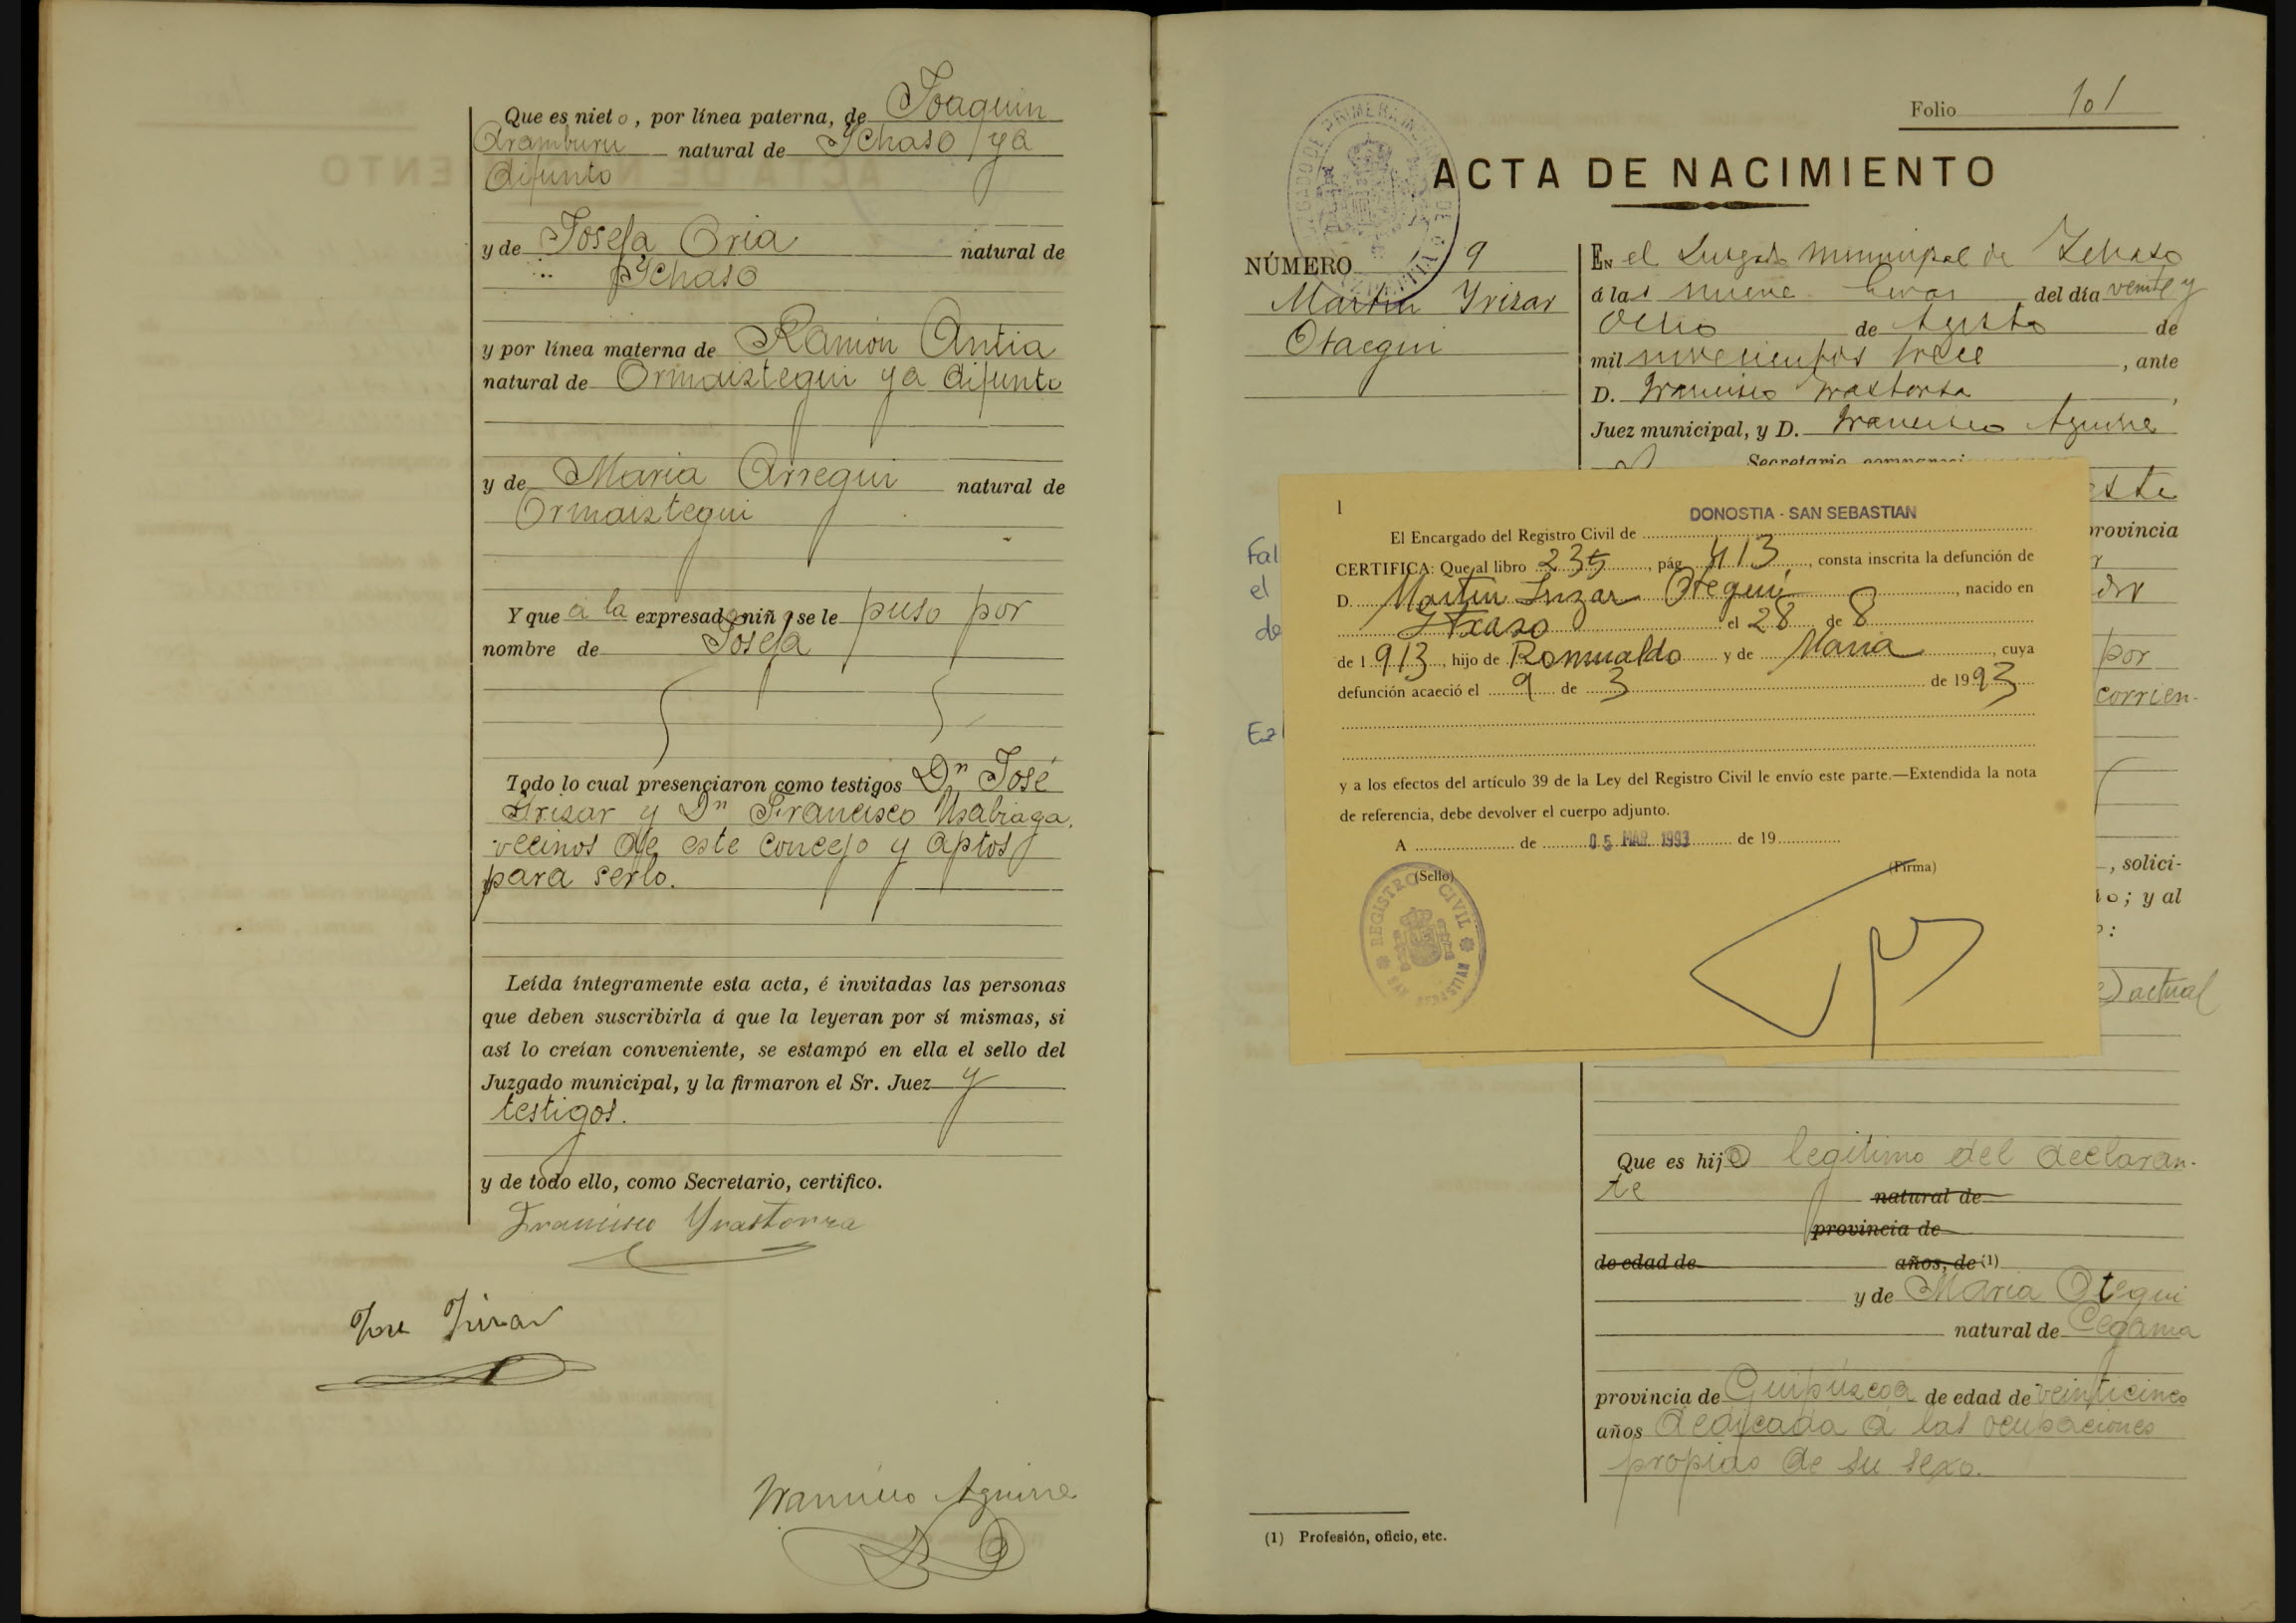 Que es nieto, por línea paterna, de Joaquin
Aramburu natural de Ychaso ya
difunto
y de Josefa Oria natural de
Ychaso
y por línea materna de Ramón Antia
natural de Ormaiztegui ya difunto
y de Maria Arregui natural de
Ormaiztegui
Y que a la expresada niña se le puso por
nombre de Josefa
Todo lo cual presenciaron como testigos Dn José
Irizar y Dn Francisco Usabiaga,
vecinos de este concejo y aptos
para serlo.
Leída íntegramente esta acta, é invitadas las personas
que deben suscribirla á que la leyeran por sí mismas, si
así lo creían conveniente, se estampó en ella el sello del
Juzgado municipal, y la firmaron el Sr. Juez y
testigos.
y de todo ello, como Secretario, certifico.
Francisco Yrastorza
José Irizar
Francisco Aguirre
Folio 101
ACTA DE NACIMIENTO
NÚMERO 9
Martin Yrizar
Otaegui
EN el Juzgado municipal de Ichaso
á las nueve horas del día veinte y
ocho de Agosto de
mil novecientos trece, ante
D. Francisco Yrastorza,
Juez municipal, y D. Francisco Aguirre
Secretario
este
provincia
por
corrien-
, solici-
; y al
actual
Fal
el
de
1
DONOSTIA - SAN SEBASTIAN
El Encargado del Registro Civil de
CERTIFICA: Que al libro 235, pág. 413, consta inscrita la defunción de
D. Martin Irizar Oteguí, nacido en
Itxaso el 28 de 8
de 1913, hijo de Romualdo y de Maria, cuya
defunción acaeció el 9 de 3 de 1993
y a los efectos del artículo 39 de la Ley del Registro Civil le envío este parte.—Extendida la nota
de referencia, debe devolver el cuerpo adjunto.
A de 05 MAR. 1993 de 19
(Sello)
(Firma)
REGISTRO CIVIL
Que es hijo legítimo del declaran-
te natural de
provincia de
de edad de años, de (1)
y de Maria Otegui
natural de Cegama
provincia de Guipúzcoa de edad de veinticinco
años dedicada a las ocupaciones
propias de su sexo.
(1) Profesión, oficio, etc.